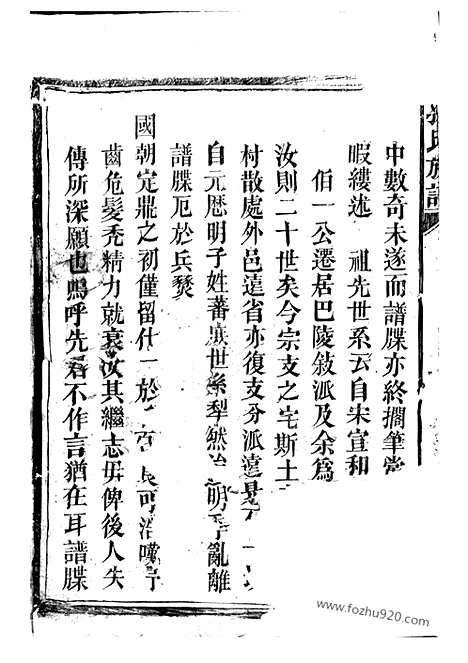 氏族譜
中數奇未遂而譜牒亦終擱筆嘗
暇縷述 祖先世系云自宋宣和
佰一公遷居巴陵敍派及余為
汝則二十世矣今宗支之宅斯土
村散處外邑遠省亦復支分派遠
自元歷明子姓蕃衍世系犁然 明季亂離
譜牒厄於兵燹
國朝定鼎之初僅留什一於
齒危髮禿精力就衰汝其繼志毋俾後人失
傳所深願也嗚呼先君不作言猶在耳譜牒
www.fozhu920.com